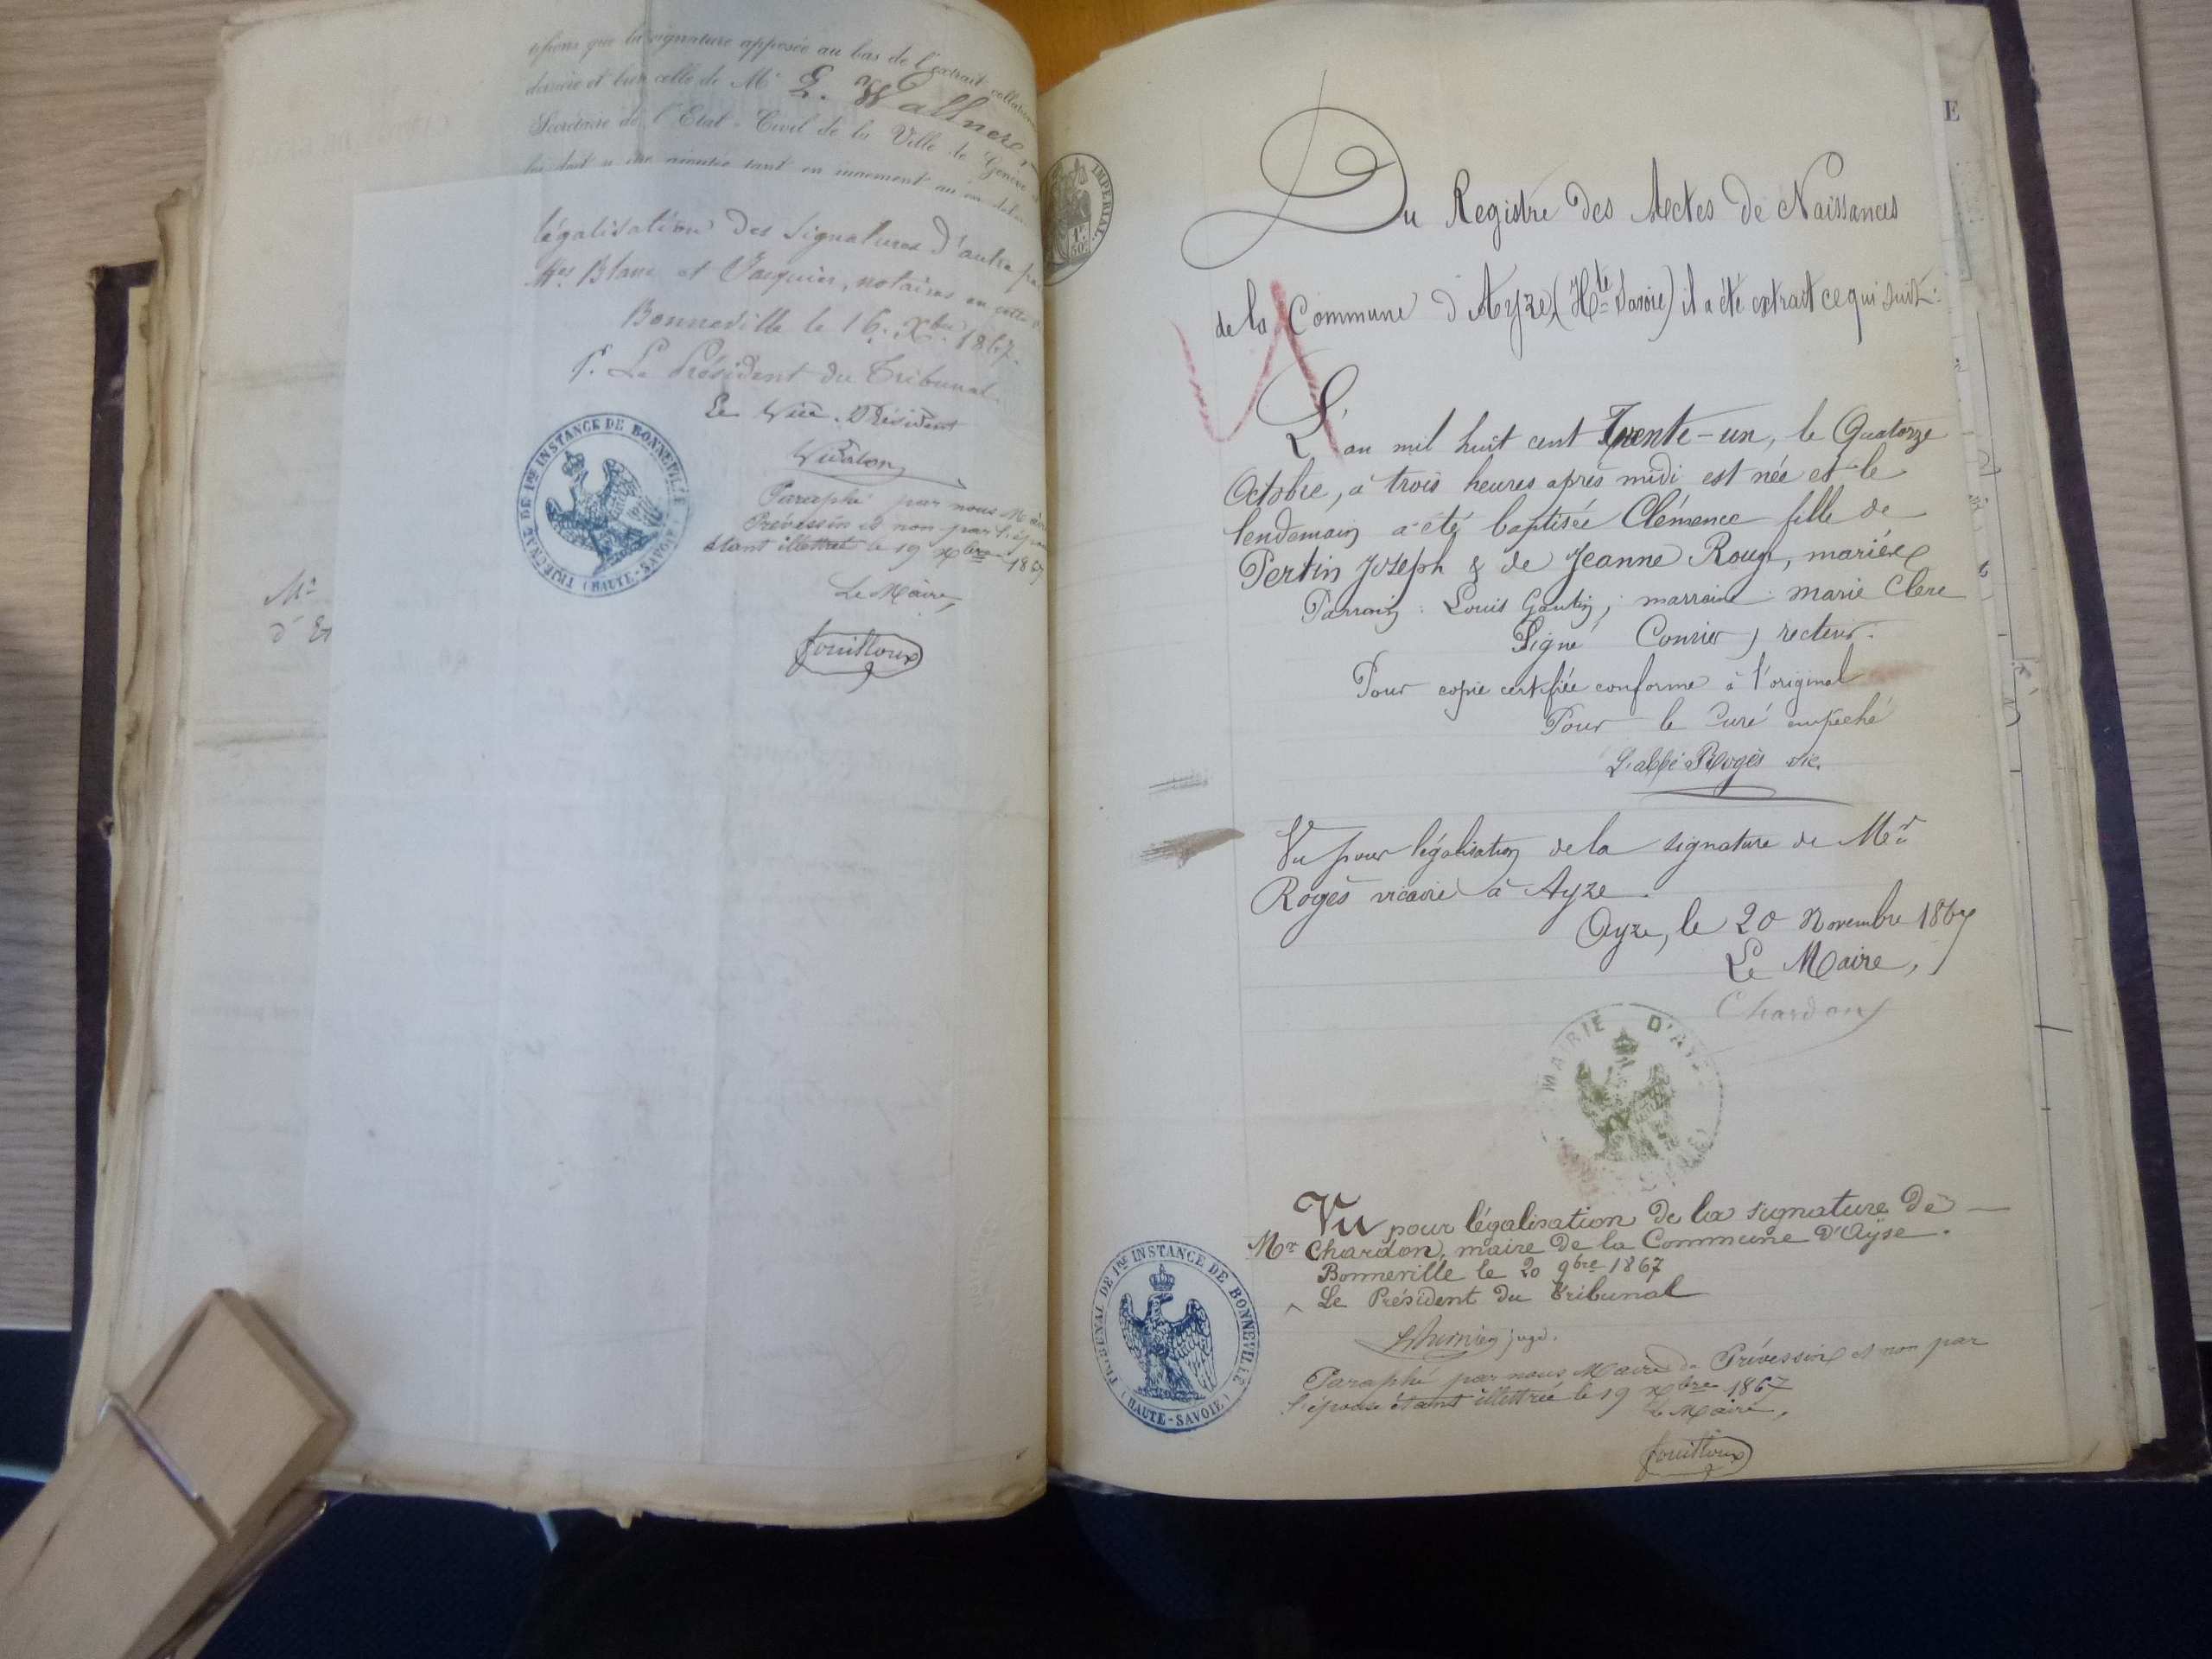 que la signature apposée au bas de l'extrait
derrière est bien celle de Mr E. Wallner,
Secrétaire de l'Etat-Civil de la Ville de Genève
tant en jugement qu'en
légalisation des signatures d'autre
Mes Blanc et Jacquier, notaires en cette
Bonneville le 16. Xbre 1867.
Pr. Le Président du Tribunal
Le Vice-Président
TRIBUNAL DE 1re INSTANCE DE BONNEVILLE
(HAUTE-SAVOIE)
Paraphé par nous Maire
Prévessin et non par l'épouse
étant illettrée le 19 Xbre 1867
Le Maire,
Fouilloux
Mr
d'Et
IMPERIAL
1F
50C
E
Du Registre des Actes de Naissances
de la Commune d'Ayze, (Hte Savoie) il a été extrait ce qui suit:
L'an mil huit cent Trente-un, le Quatorze
Octobre, à trois heures après midi est née et le
lendemain a été baptisée Clémence fille de
Pertin Joseph & de Jeanne Rouge, mariés
Parrain: Louis Gantin; marraine: marie Clerc
Signé Convier, recteur.
Pour copie certifiée conforme à l'original
Pour le Curé empêché
L'abbé Rogès vic.
Vu pour légalisation de la signature de Mr
Rogès vicaire à Ayze.
Ayze, le 20 Novembre 1867
Le Maire,
Chardon
MAIRIE D'AYZE
Vu pour légalisation de la signature de
Mr Chardon, maire de la Commune d'Ayse.
Bonneville le 20 9bre 1867
Le Président du Tribunal
juge.
TRIBUNAL DE 1re INSTANCE DE BONNEVILLE
(HAUTE-SAVOIE)
Paraphé par nous Maire de Prévessin et non par
l'épouse étant illettrée le 19 Xbre 1867
Le Maire,
Fouilloux